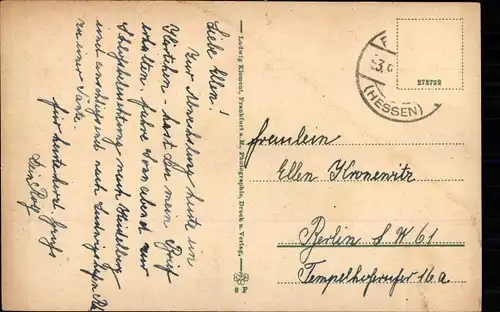 Liebe Ellen!
Zur Abwechslung heute ein
Kärtchen - hast Du mein Brief
erhalten. fahre Sonnabend zur
Schloßbeleuchtung nach Heidelberg
und anschließend nach Ludwigshafen
zu einer Tante.
für heute herzl. Grüße
Dein Rolf
Ludwig Klement, Frankfurt a. M., Photographie, Druck u. Verlag.
8 F
(HESSEN)
273792
Fräulein
Ellen Kronewitz
Berlin S W 61
Tempelhoferufer 16 a